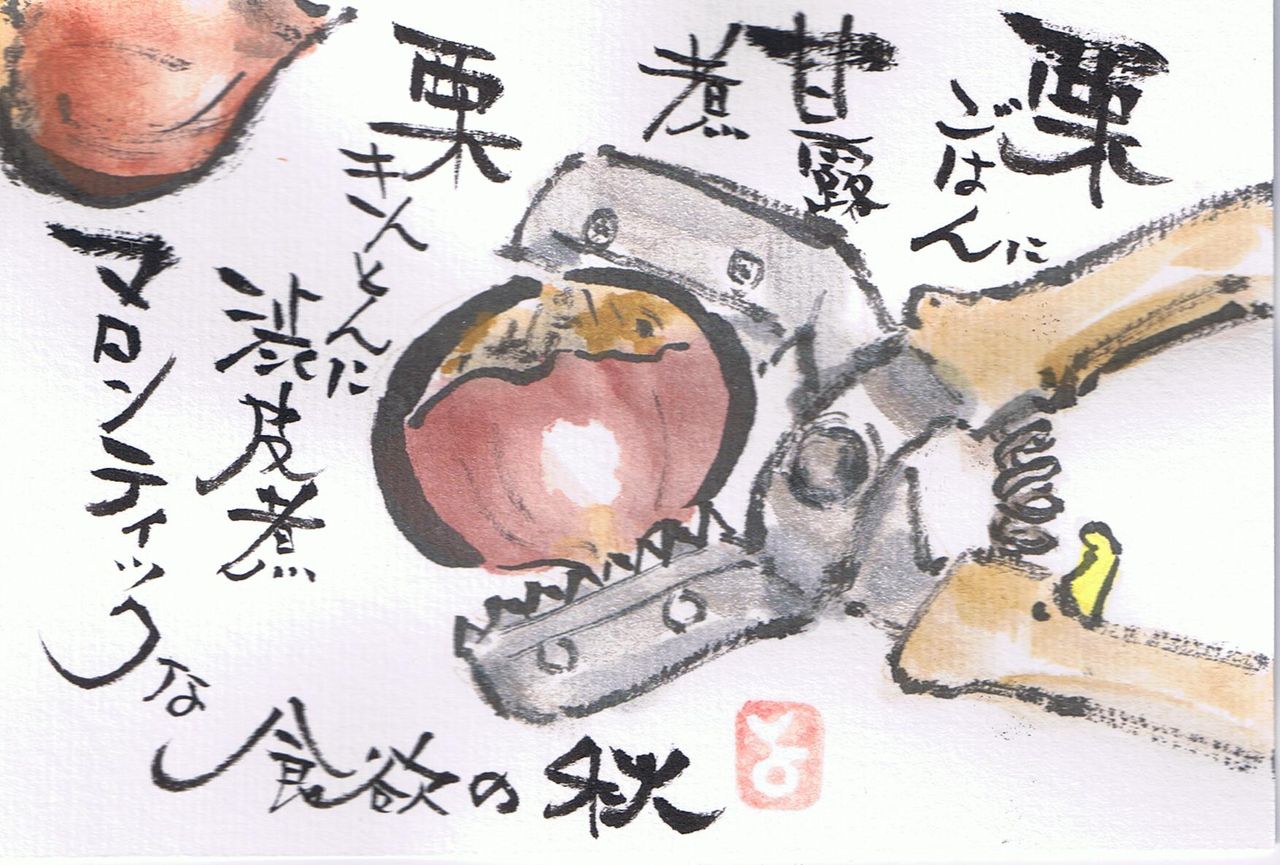 栗
ごはんに
甘露
煮
栗
きんとんに
渋皮煮
マロンティックな
食欲の秋